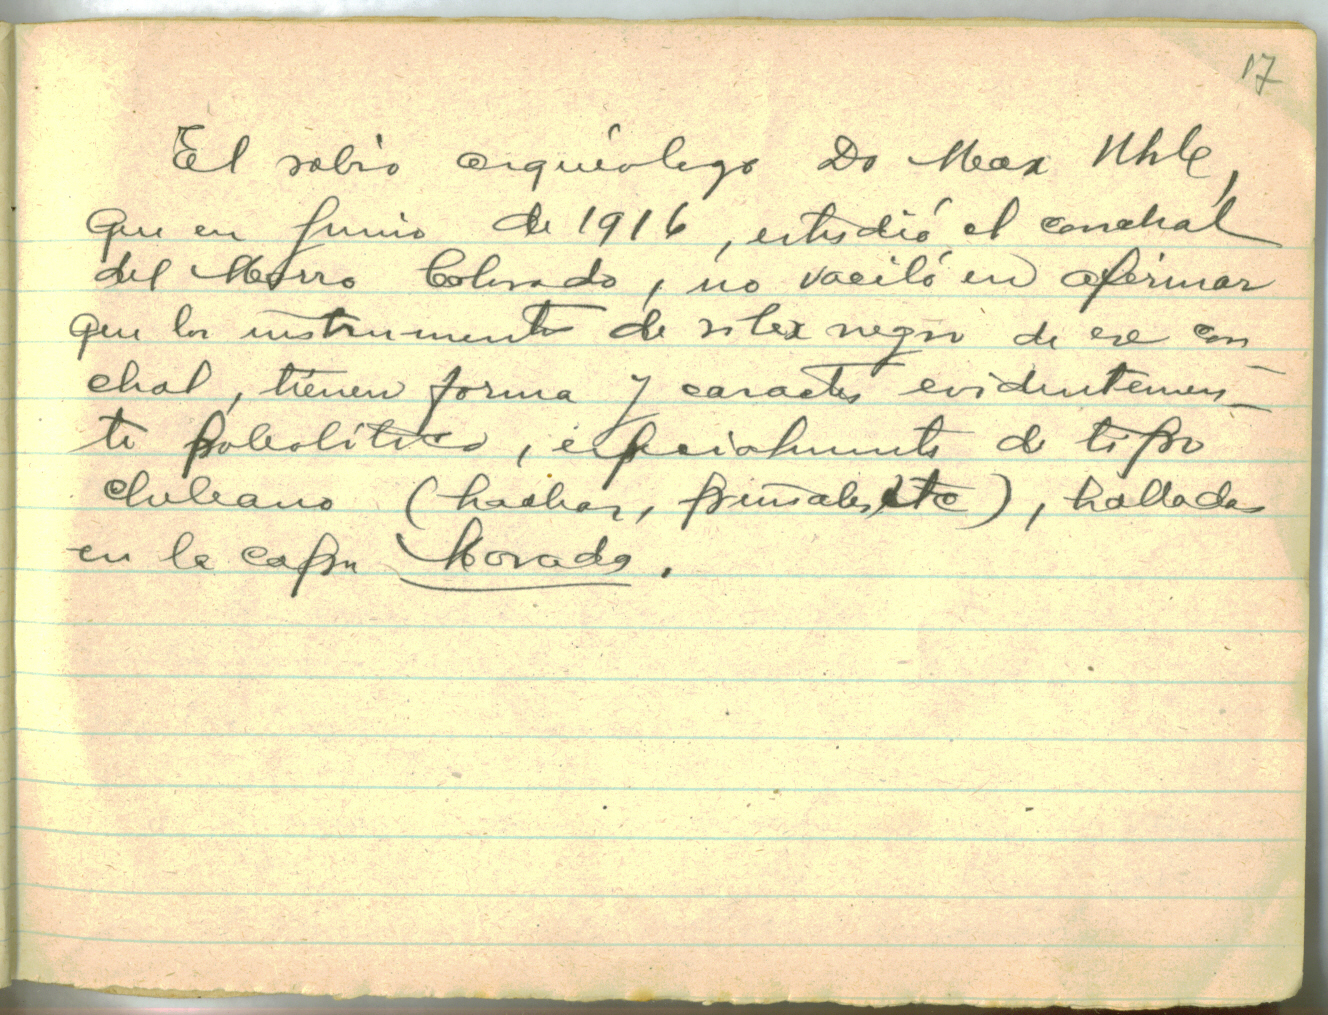 17
El sabio arqueólogo Do Max Uhle,
que en Junio de 1916, estudió el conchal
del Morro Colorado, no vaciló en afirmar
que los instrumentos de silex negro de ese con
chal, tienen forma y caracter evidentemen_
te paleolitico, especialmente de tipo
chileano (hachas, puñales, etc), halladas
en la capa Morada.